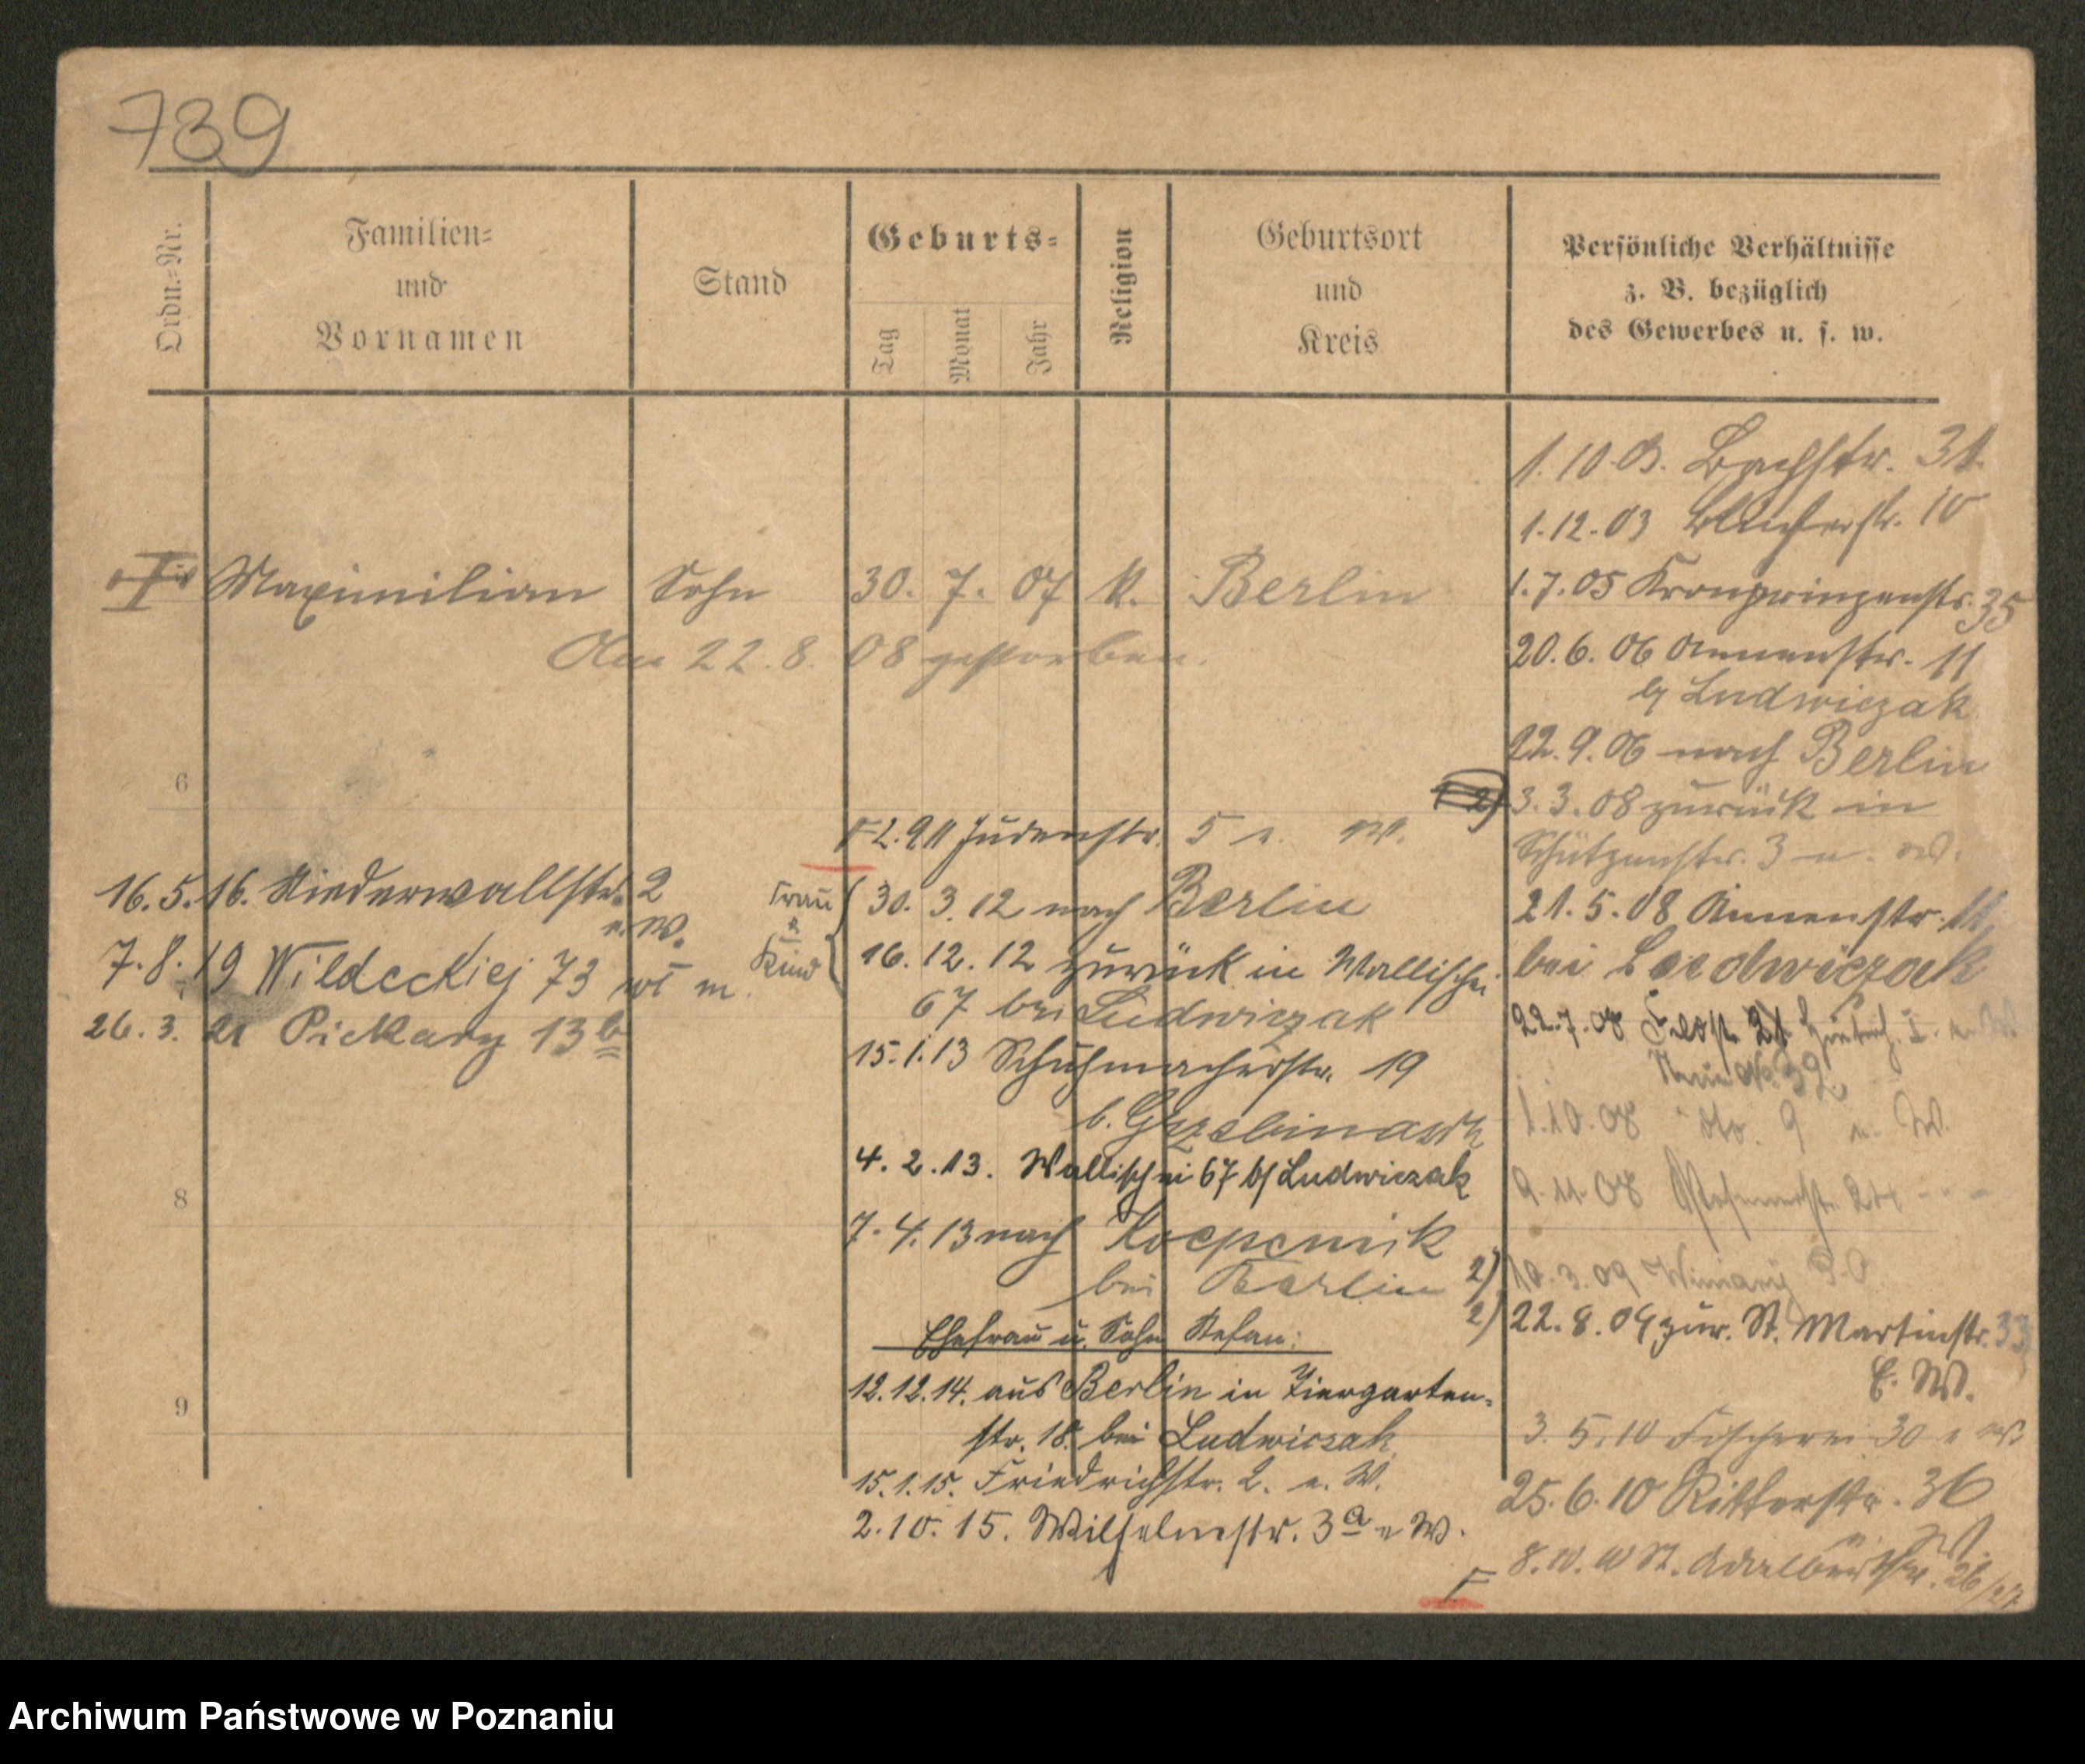 739
Ordn.-Nr.
Familien-
und
Vornamen
Stand
Geburts-
Tag
Monat
Jahr
Religion
Geburtsort
und
Kreis
Persönliche Verhältnisse
z. B. bezüglich
des Gewerbes u. s. w.
Maximilian Sohn 30. 7. 07 k. Berlin
Am 22.8. 08 gestorben.
6
16.5.16. Niederwallstr. 2
e. W.
7.8.19 Wildeckiej 73 wł m.
26. 3. 21 Piekary 13 b
8
9
2.9.11 Judenstr. 5 e. W.
Frau
&
Kind
30. 3. 12 nach Berlin
16. 12. 12 zurück in Wallischei
67 bei Ludwiczak
15.1.13 Schuhmacherstr. 19
b.
4. 2. 13. Wallischei 67 bj Ludwiczak
7. 4. 13 nach Koepenik
bei Berlin
Ehefrau u. Sohn Stefan:
12.12.14. aus Berlin in Tiergarten-
str. 18. bei Ludwiczak
15.1.15. Friedrichstr. 2. e. W.
2.10.15. Wilhelmstr. 3a e W.
1.10.03. Bachstr. 31.
1.12.03 Blücherstr. 10
1.7.05 Kronprinzenstr. 35
20.6.06 Annenstr. 11
bj Ludwiczak
22.9.06 nach Berlin
2) 3.3.08 zurück in
Schützenstr. 3 e. W.
21.5.08 Annenstr. 11
bei Ludwiczak
22.7.08
1.10.08 dto. 9 e. W.
9.11.08
2) 10.3.09 Winiary
2) 22.8.09 zur. St. Martinstr. 33
E. W.
3. 5. 10 Fischerei 30 e W
25.6.10 Ritterstr. 36
e. W.
8.10.10 St. Adalbertstr. 26/27
Archiwum Państwowe w Poznaniu